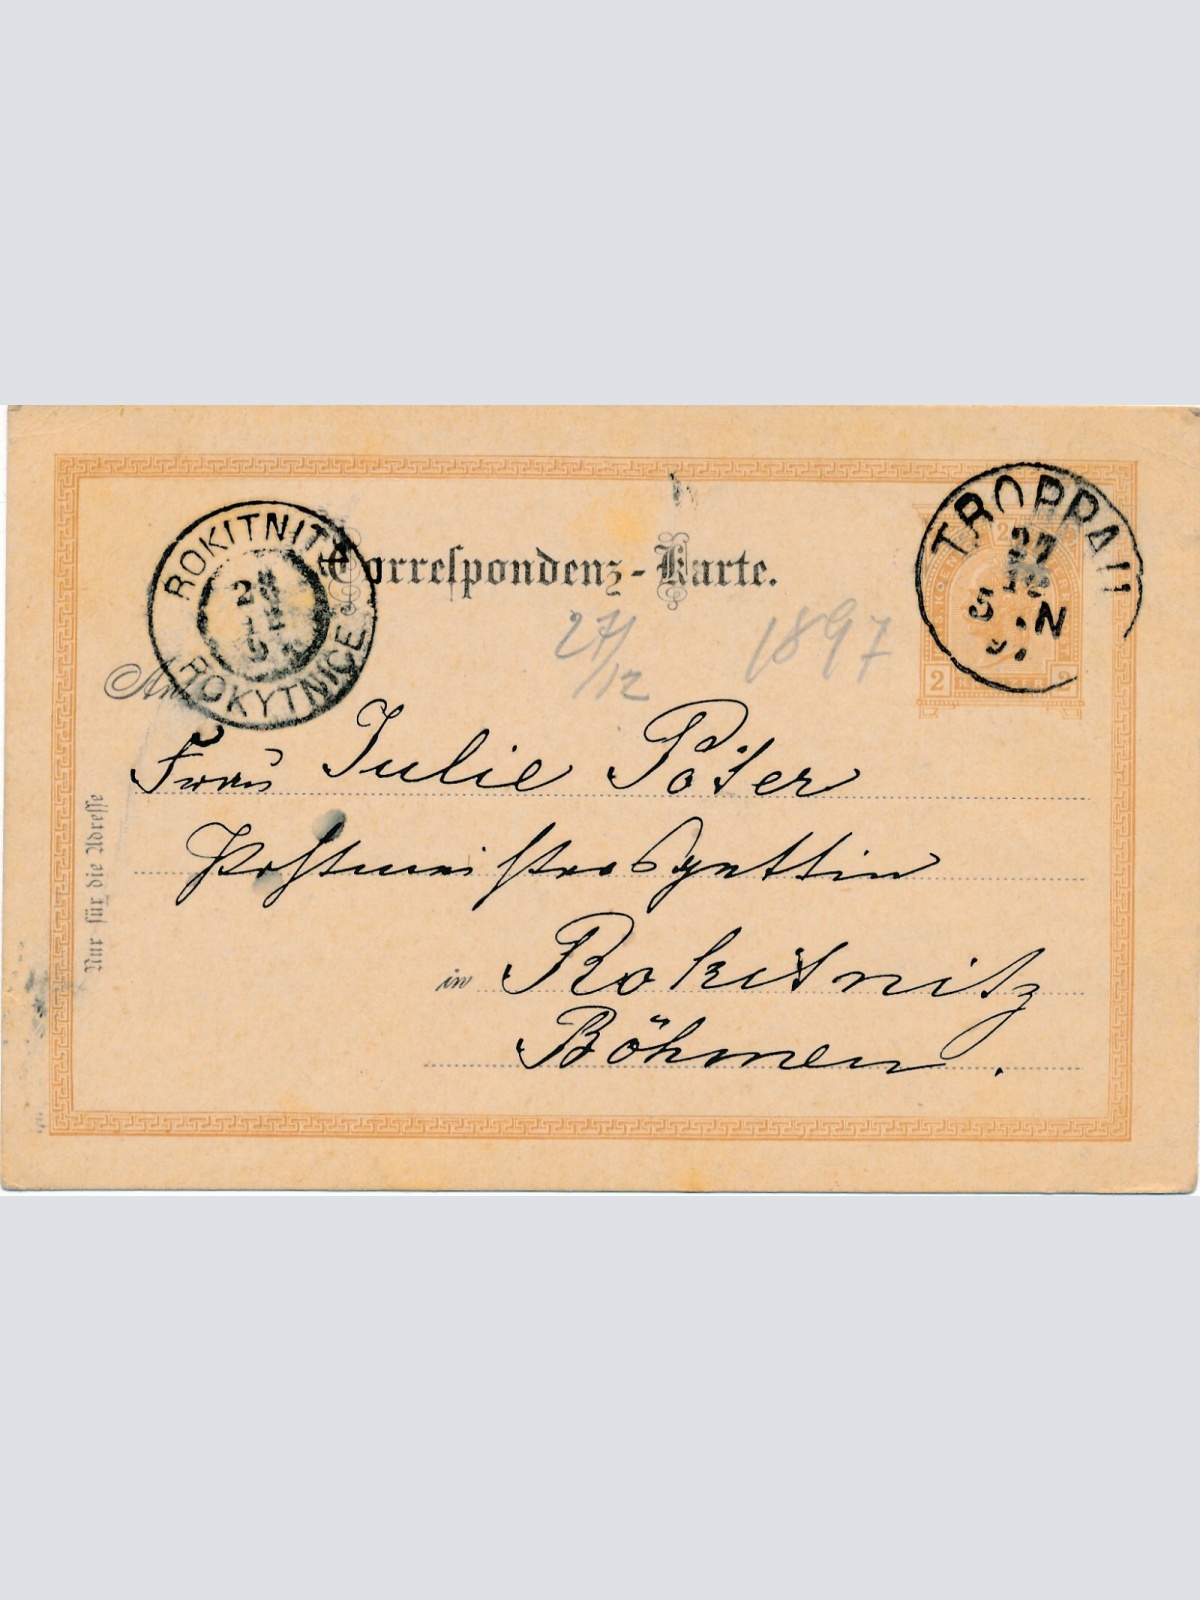 Correspondenz-Karte.
ROKITNITZ
28
12
ROKYTNICE
TROPPAU
27
12
5 N
97
2 2
27/12 1897
An
Frau Julie Poter
Postmeistersgattin
in Rokitnitz
Böhmen.
Nur für die Adresse